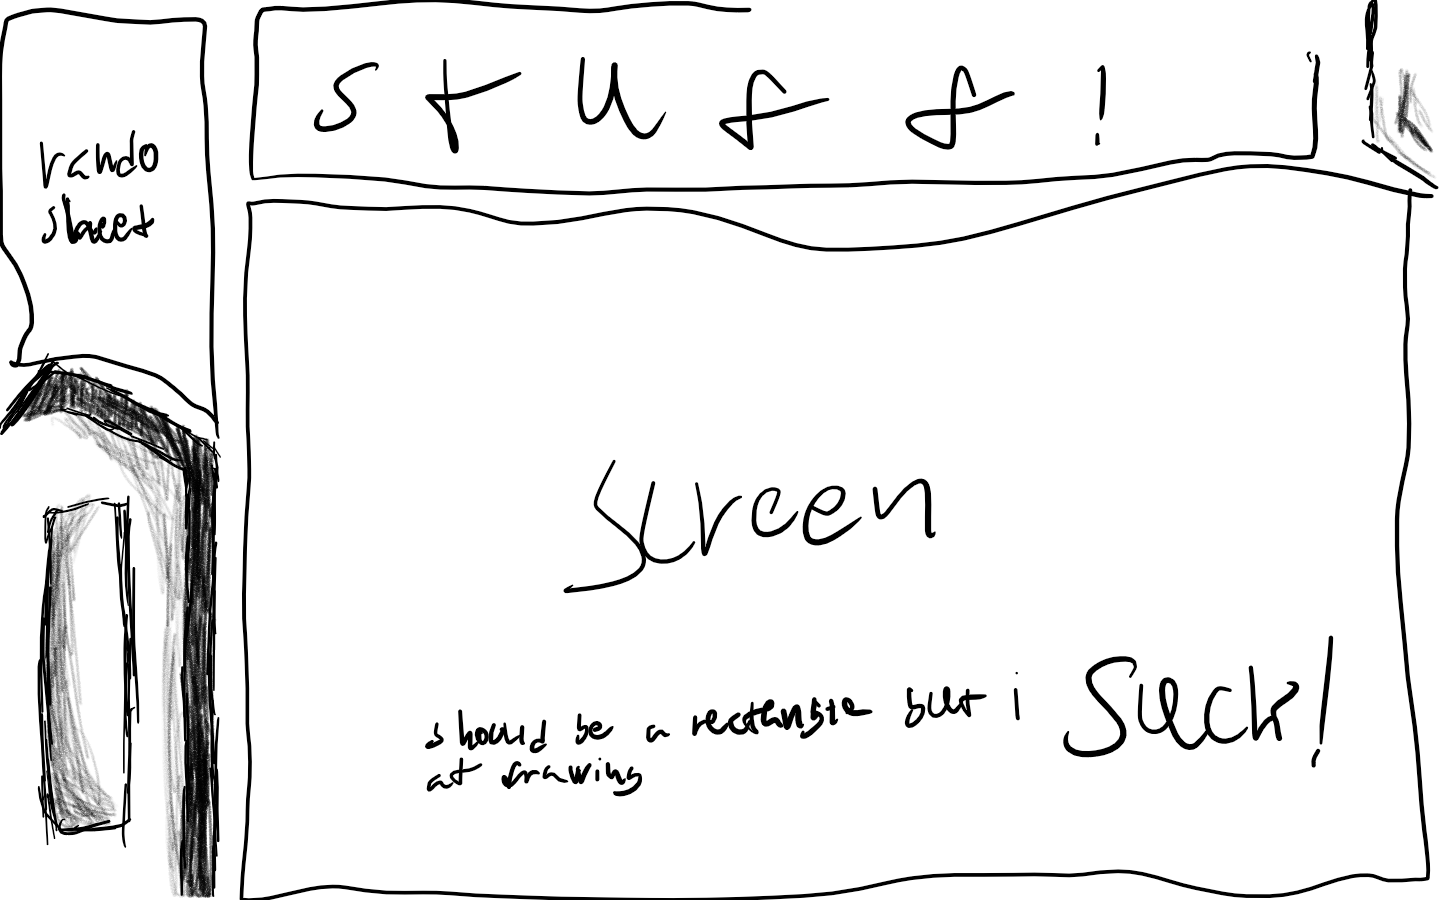 stuff!
rando
sheet
screen
should be a rectangle but i suck!
at drawing